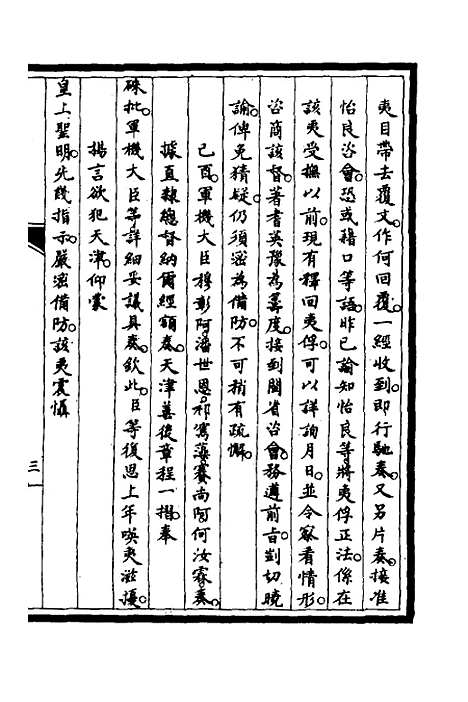 夷目帶去覆文。作何回覆。一經收到。即行馳奏。又另片奏。接准
怡良咨會。恐或藉口等語。昨已諭知怡良等。將夷俘正法。係在
該夷受撫以前。現有釋回夷俘。可以詳詢月日。並令察看情形。
咨商該督。著耆英豫為籌度。接到閩省咨會。務遵前旨剴切曉
諭。俾免猜疑。仍須密為備防。不可稍有疏懈。
己酉。軍機大臣穆彰阿。潘世恩。祁寯藻。賽尚阿。何汝霖。奏。
據直隸總督納爾經額奏。天津善後章程一摺。奉
硃批。軍機大臣等詳細妥議具奏。欽此。臣等復思上年𠸄夷滋擾。
揚言欲犯天津。仰蒙
皇上聖明。先幾指示。嚴密備防。該夷震懾
三一